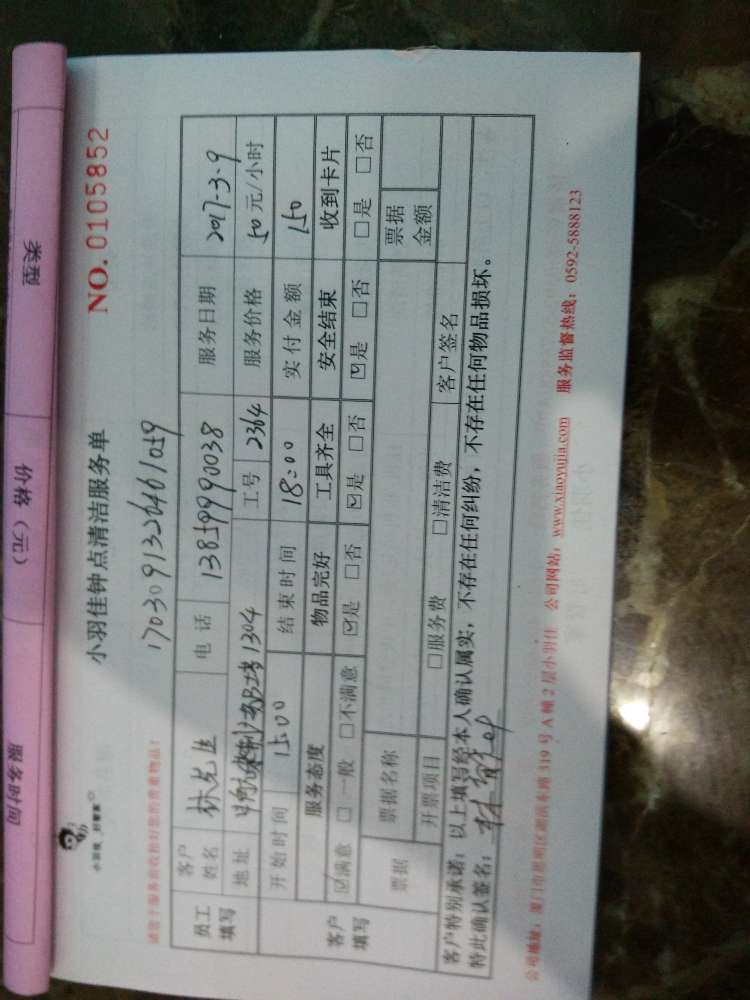 类型
价格（元）
服务时间
小羽佳
小羽佳钟点清洁服务单
NO. 0105852
1703091326461059
请您于服务前收拾好您的贵重物品！
员工填写 客户姓名 林先生 电话 13859990038 服务日期 2017-3-9
地址 B2栋1304 工号 2364 服务价格 50元/小时
开始时间 15:00 结束时间 18:00 实付金额 150
客户填写 服务态度 物品完好 工具齐全 安全结束 收到卡片
☑满意 □一般 □不满意 ☑是 □否 ☑是 □否 ☑是 □否 □是 □否
票据 票据名称 票据金额
开票项目 □服务费 □清洁费 客户签名
客户特别承诺：以上填写经本人确认属实，不存在任何纠纷，不存在任何物品损坏。
特此确认签名：林
公司地址：厦门市思明区湖滨东路319号A幢2层小羽佳 公司网站：www.xiaoyujia.com 服务监督热线：0592-5888123